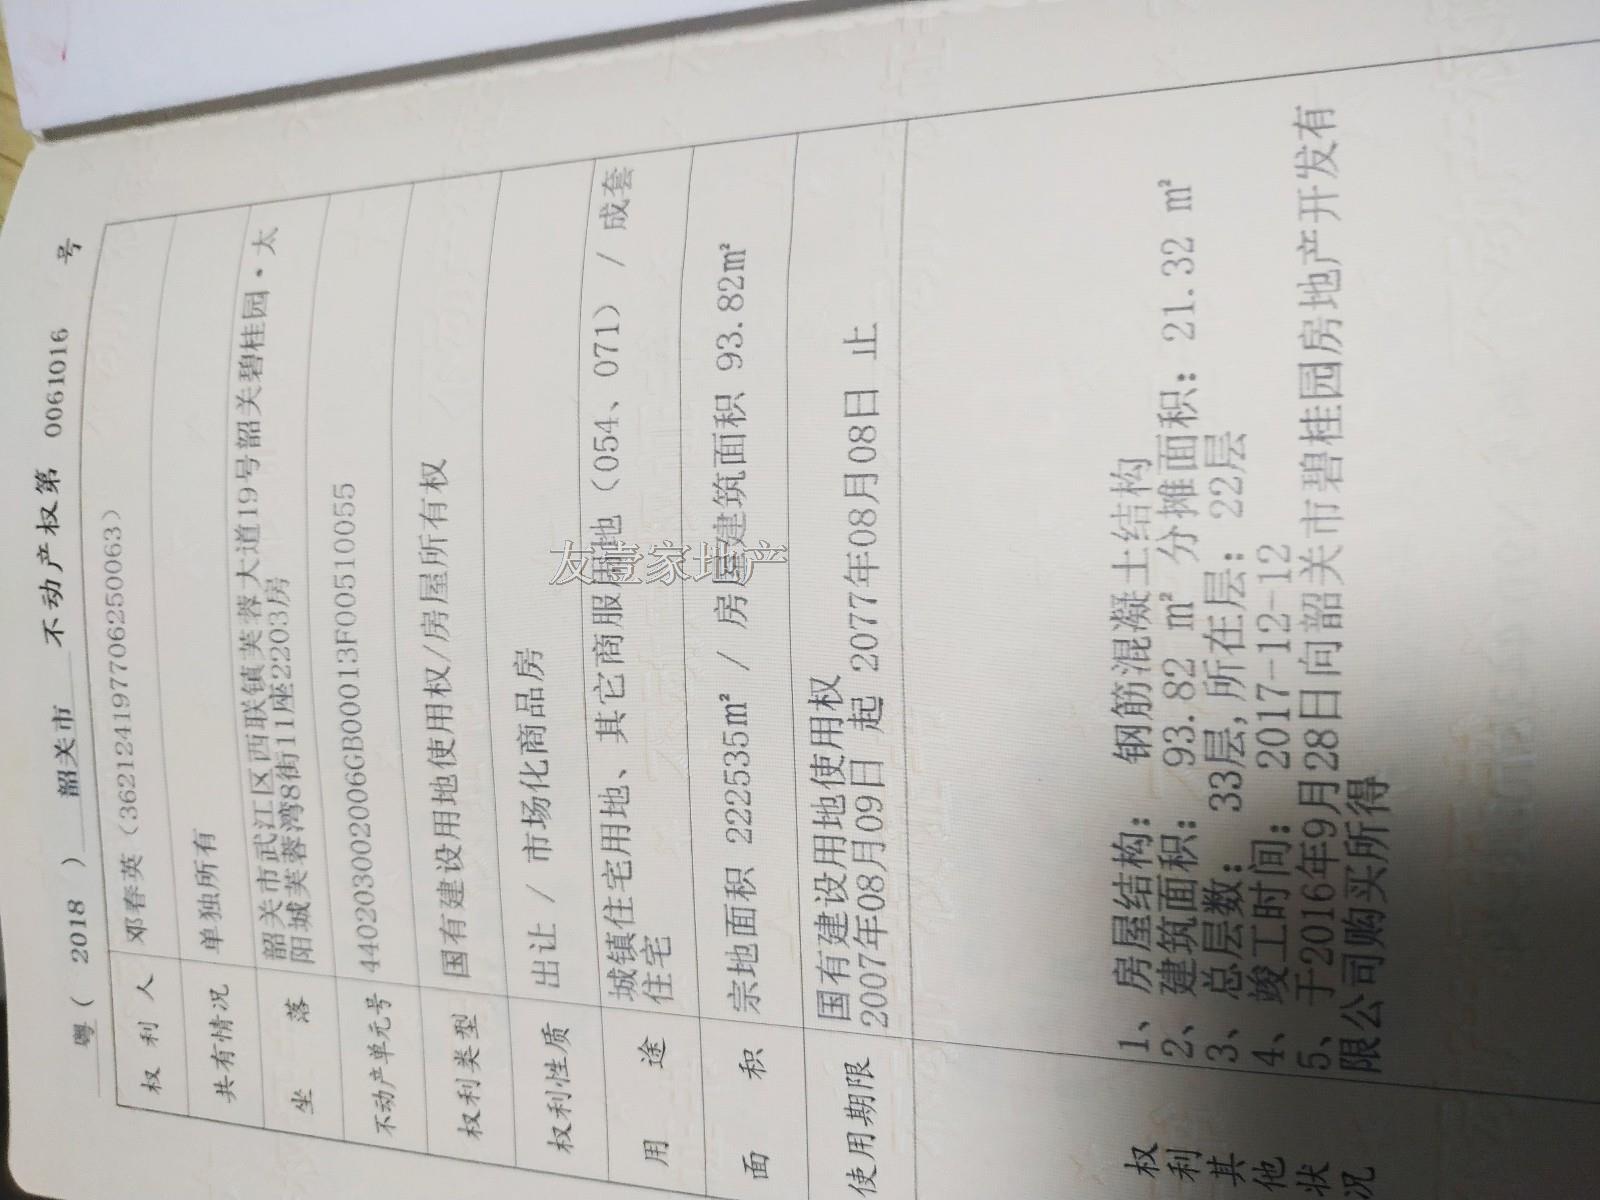 粤（ 2018 ） 韶关市 不动产权第 0061016 号
权利人 邓春英（362124197706250063）
共有情况 单独所有
坐落 韶关市武江区西联镇芙蓉大道19号韶关碧桂园·太
阳城芙蓉湾8街11座2203房
不动产单元号 440203002006GB00013F00510055
权利类型 国有建设用地使用权/房屋所有权
权利性质 出让 / 市场化商品房
用途 城镇住宅用地、其它商服用地（054、071）/ 成套
住宅
面积 宗地面积 222535㎡ / 房屋建筑面积 93.82㎡
使用期限 国有建设用地使用权
2007年08月09日 起 2077年08月08日 止
权利其他状况
1、房屋结构： 钢筋混凝土结构
2、建筑面积： 93.82 ㎡ 分摊面积：21.32 ㎡
3、总层数： 33层,所在层： 22层
4、竣工时间： 2017-12-12
5、于2016年9月28日向韶关市碧桂园房地产开发有
限公司购买所得
友壹家地产